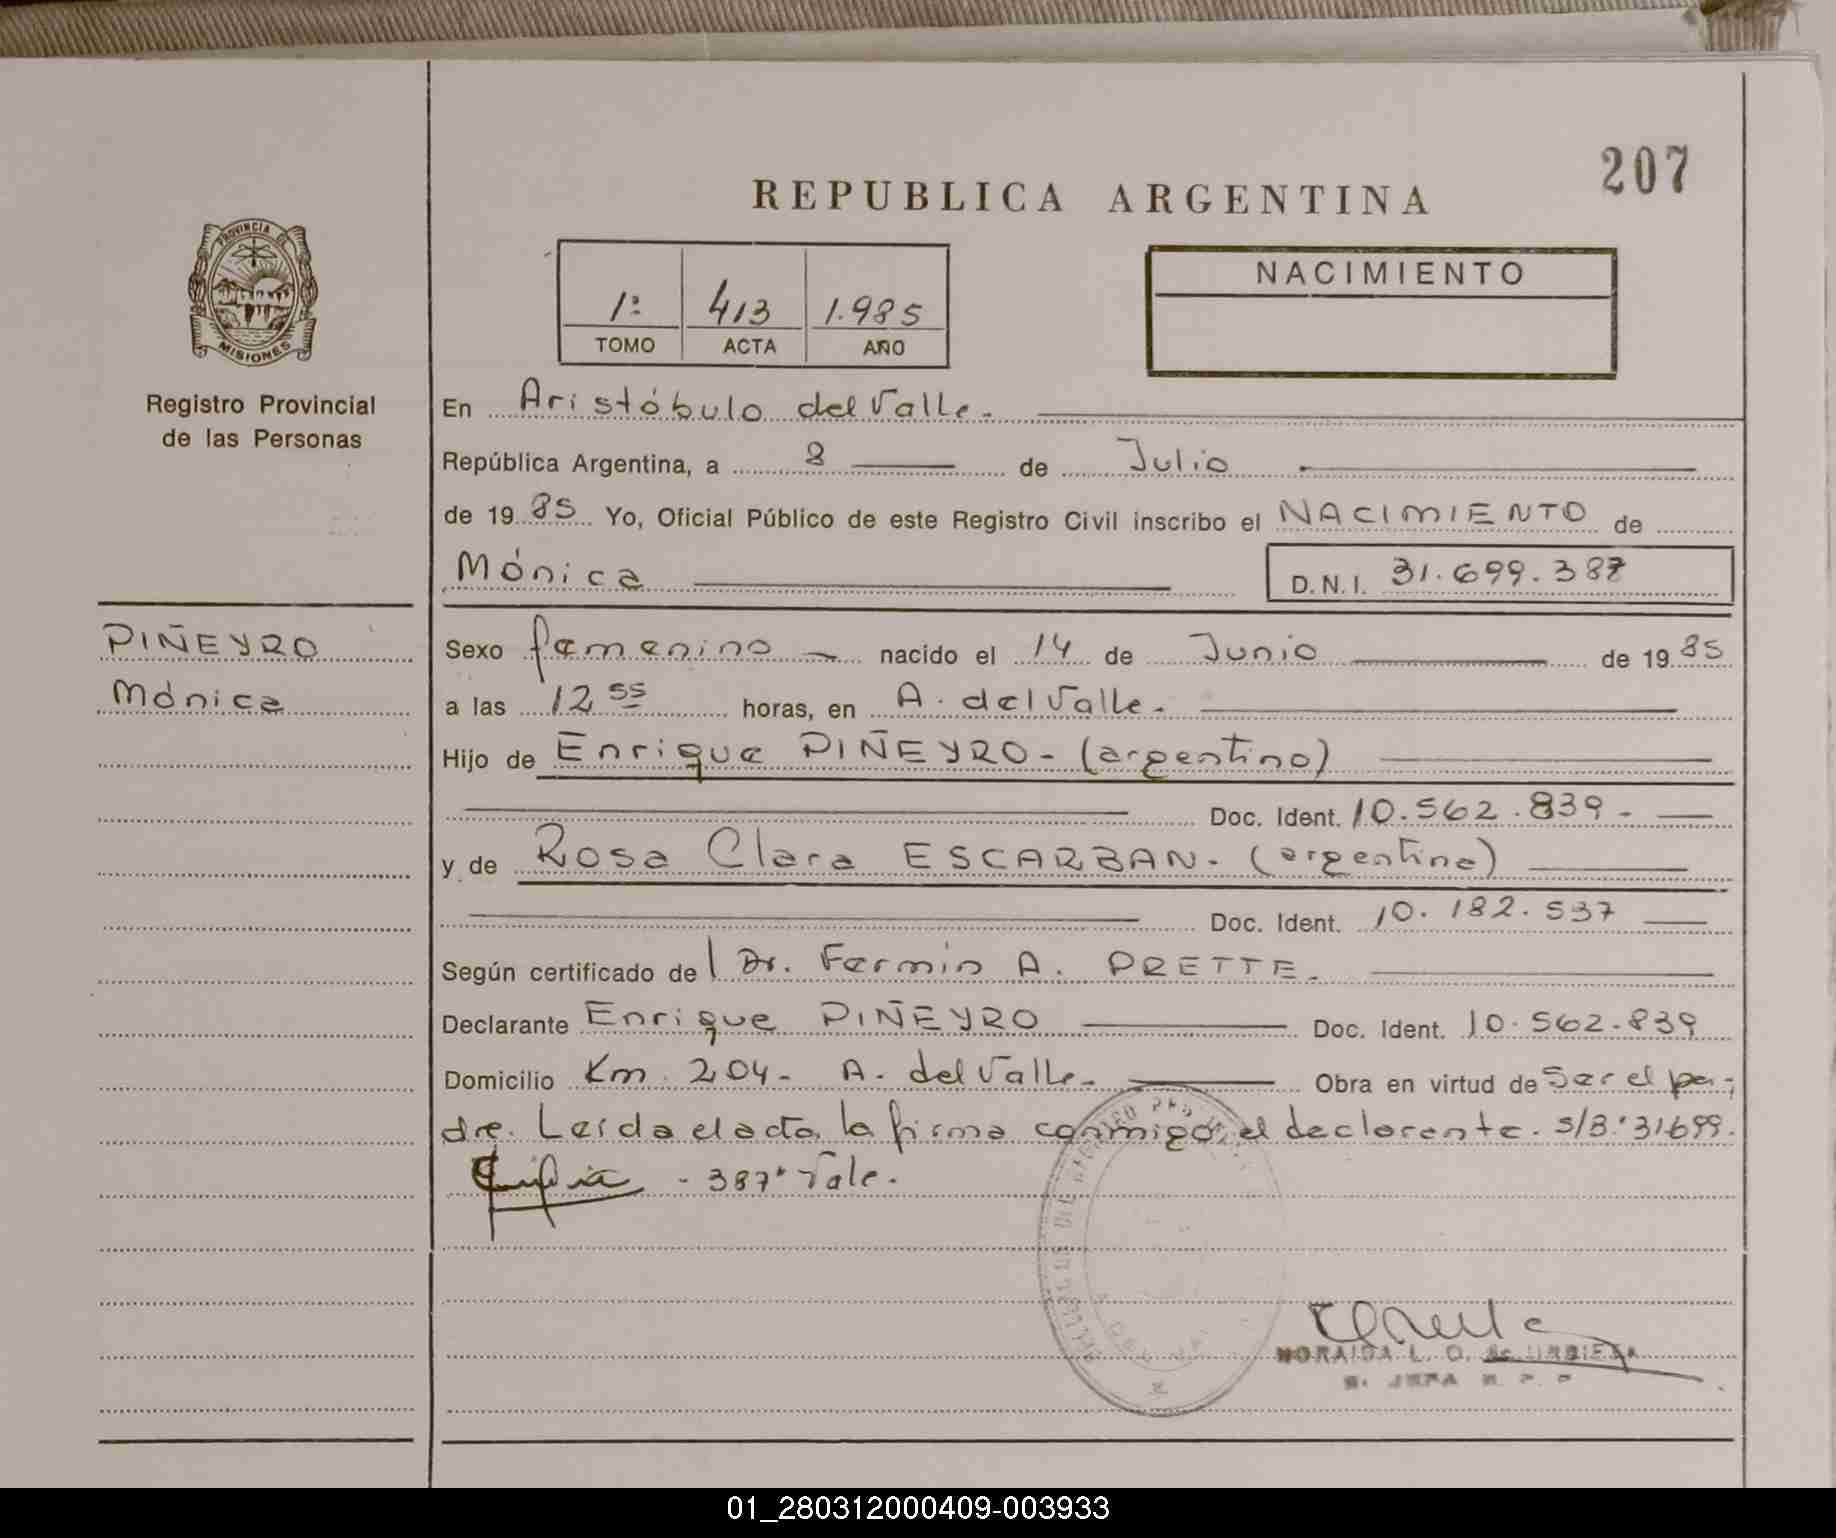 207
REPUBLICA ARGENTINA
PROVINCIA DE
MISIONES
Registro Provincial
de las Personas
1º 413 1.985
TOMO ACTA AÑO
NACIMIENTO
En Aristóbulo del Valle.
República Argentina, a 8 de Julio
de 1985 Yo, Oficial Público de este Registro Civil inscribo el NACIMIENTO de
Mónica D.N.I. 31.699.387
PIÑEYRO
Mónica
Sexo femenino nacido el 14 de Junio de 1985
a las 12 55 horas, en A. del Valle.
Hijo de Enrique PIÑEYRO - (argentino)
Doc. Ident. 10.562.839 -
y de Rosa Clara ESCARBAN. (argentina)
Doc. Ident. 10.182.537
Según certificado de Dr. Fermín A. PRETTE.
Declarante Enrique PIÑEYRO Doc. Ident. 10.562.839
Domicilio Km 204 - A. del Valle. Obra en virtud de Ser el pa-
dre. Leída el acta, la firma conmigo, el declarante. s/B. 31.699.
- 387 Vale.
NORAIDA L. O. de URBIETA
JEFA R. P. P
01_280312000409-003933